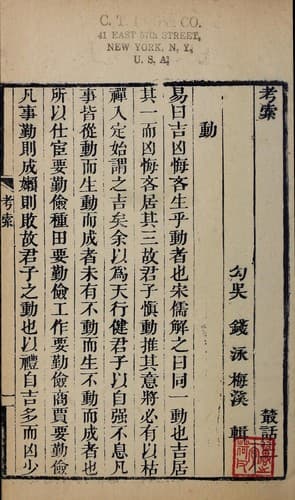 41 EAST 57TH STREET,
NEW YORK, N. Y.
U. S. A.
考索 叢話
勾吳 錢泳梅溪 輯
動
易曰吉凶悔吝生乎動者也宋儒解之曰同一動也吉居
其一而凶悔吝居其三故君子慎動推其意將必有以枯
禪入定始謂之吉矣余以為天行健君子以自强不息凡
事皆從動而生動而成者未有不動而生不動而成者也
所以仕宦要勤儉種田要勤儉工作要勤儉商賈要勤儉
凡事勤則成嬾則敗故君子之動也以禮自吉多而凶少
考索